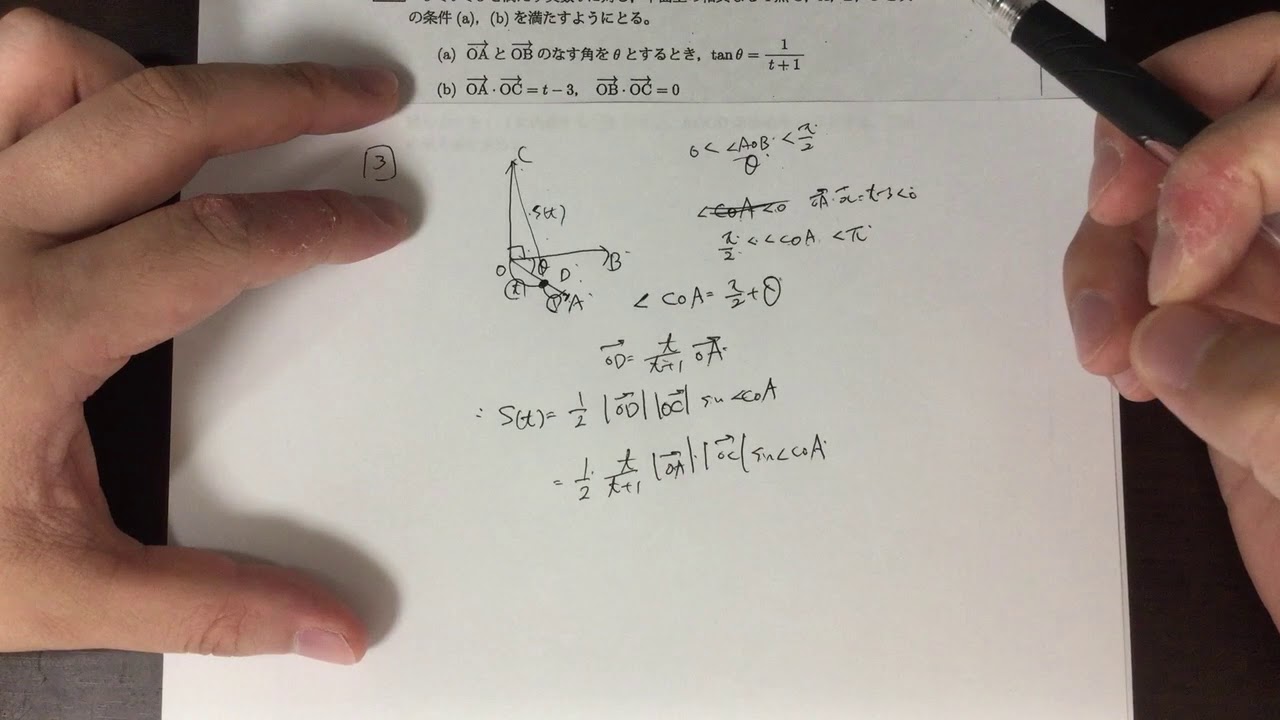 の条件 (a), (b) を満たすようにとる。
(a) OA→ と OB→ のなす角を θ とするとき, tan θ = 1/(t+1)
(b) OA→・OC→ = t − 3, OB→・OC→ = 0
3
C
S(t)
O
θ
D
B
t
1
A
0 < ∠AOB < π/2
θ
OA→・OC→ = t−3 < 0
π/2 < ∠COA < π
∠COA = π/2 + θ
OD→ = t/(t+1) OA→
∴ S(t) = 1/2 |OD→| |OC→| sin∠COA
= 1/2 t/(t+1) |OA→|・|OC→| sin∠COA